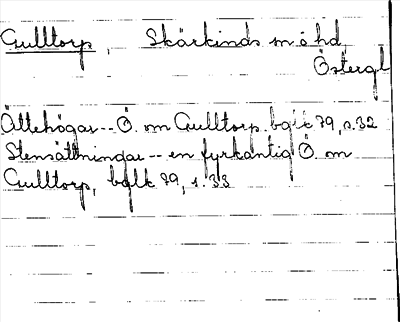 Gulltorp, Skärkinds sn o hd
Östergl
Ättehögar -- Ö. om Gulltorp, bglk 79, s. 32
Stensättningar -- en fyrkantig Ö. om
Gulltorp, bglk 79, s. 33